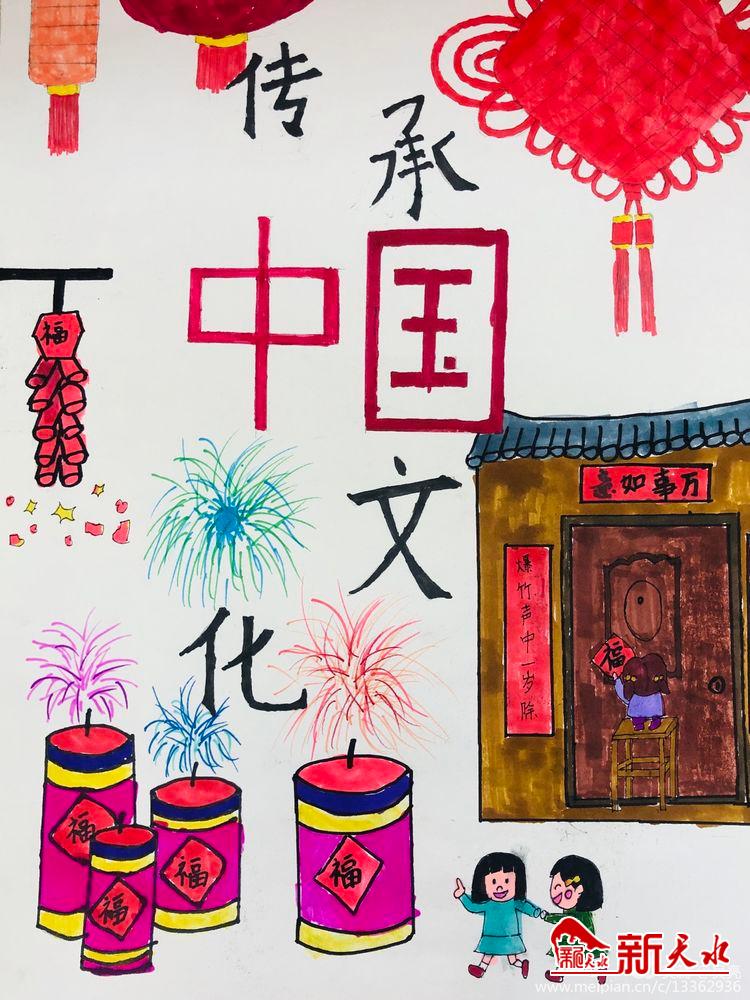 传承
中国
文化
福
万事如意
爆竹声中一岁除
福
福
福
福
福
新天水
www.meipian.cn/c/13362936